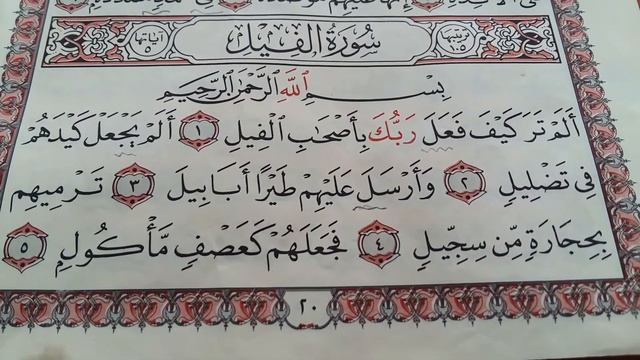 ترتيبها ١٠٥ سُورَةُ الْفِيلِ آياتها ٥
بِسْمِ اللَّهِ الرَّحْمَٰنِ الرَّحِيمِ
أَلَمْ تَرَ كَيْفَ فَعَلَ رَبُّكَ بِأَصْحَابِ الْفِيلِ ١ أَلَمْ يَجْعَلْ كَيْدَهُمْ
فِي تَضْلِيلٍ ٢ وَأَرْسَلَ عَلَيْهِمْ طَيْرًا أَبَابِيلَ ٣ تَرْمِيهِم
بِحِجَارَةٍ مِّن سِجِّيلٍ ٤ فَجَعَلَهُمْ كَعَصْفٍ مَّأْكُولٍ ٥
٢٠